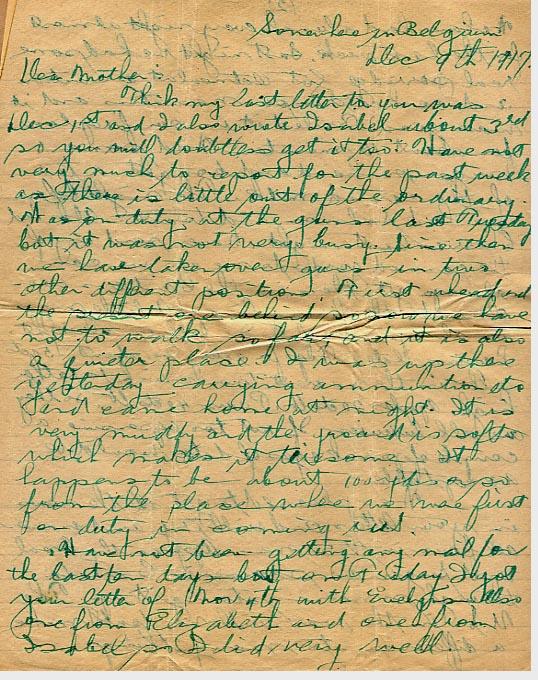 Somewhere in Belgium
Dec 9th 1917
Dear Mother:
Think my last letter to you was
Dec 1st and I also wrote Isabel about 3rd
so you will doubtless get it too. Have not
very much to report for the past week
as there is little out of the ordinary.
Was on duty at the guns last Tuesday
but it was not very busy. Since then
we have taken over guns in two
other diffrent position. First ahead and
the one behind so now we have
not to walk so far and it is also
a quieter place. I was up there
yesterday carrying ammunition etc
and came home at night. It is
very muddy and the ground is soft
which makes it tiresome. It
happens to be about 100 yds or so
from the place where we were first
on duty in coming out.
Have not been getting any mail for
the last ten days but on Friday I got
your letter of Nov 4th with Evelyns also
one from Elizabeth and one from
Isabel so I did very well.